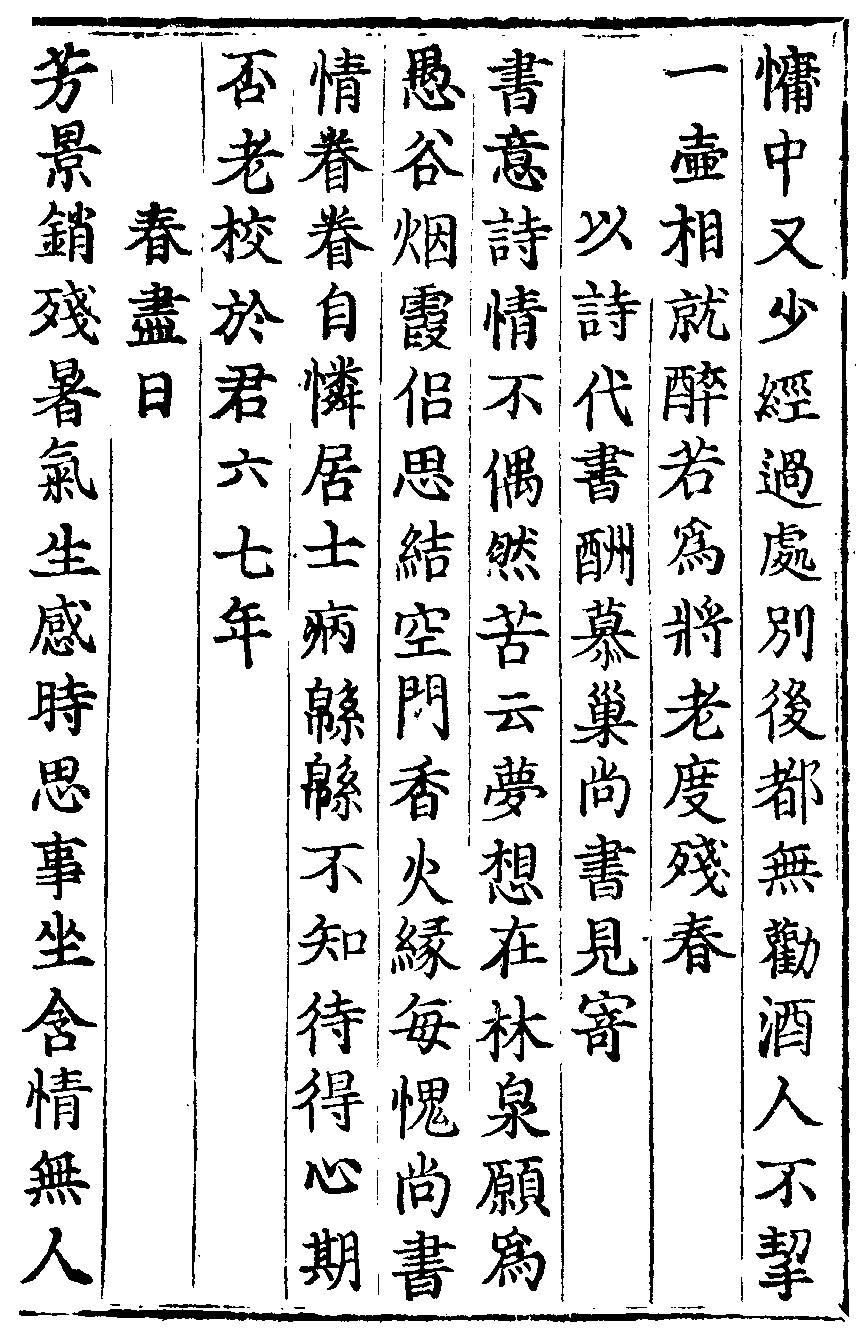 慵中又少經過處別後都無勸酒人不挈
一壷相就醉若爲將老度殘春
以詩代書酬慕巢尚書見寄
書意詩情不偶然苦云夢想在林泉願爲
愚谷烟霞侶思結空門香火緣每愧尚書
情眷眷自憐居士病緜緜不知待得心期
否老校於君六七年
春盡日
芳景銷殘暑氣生感時思事坐含情無人